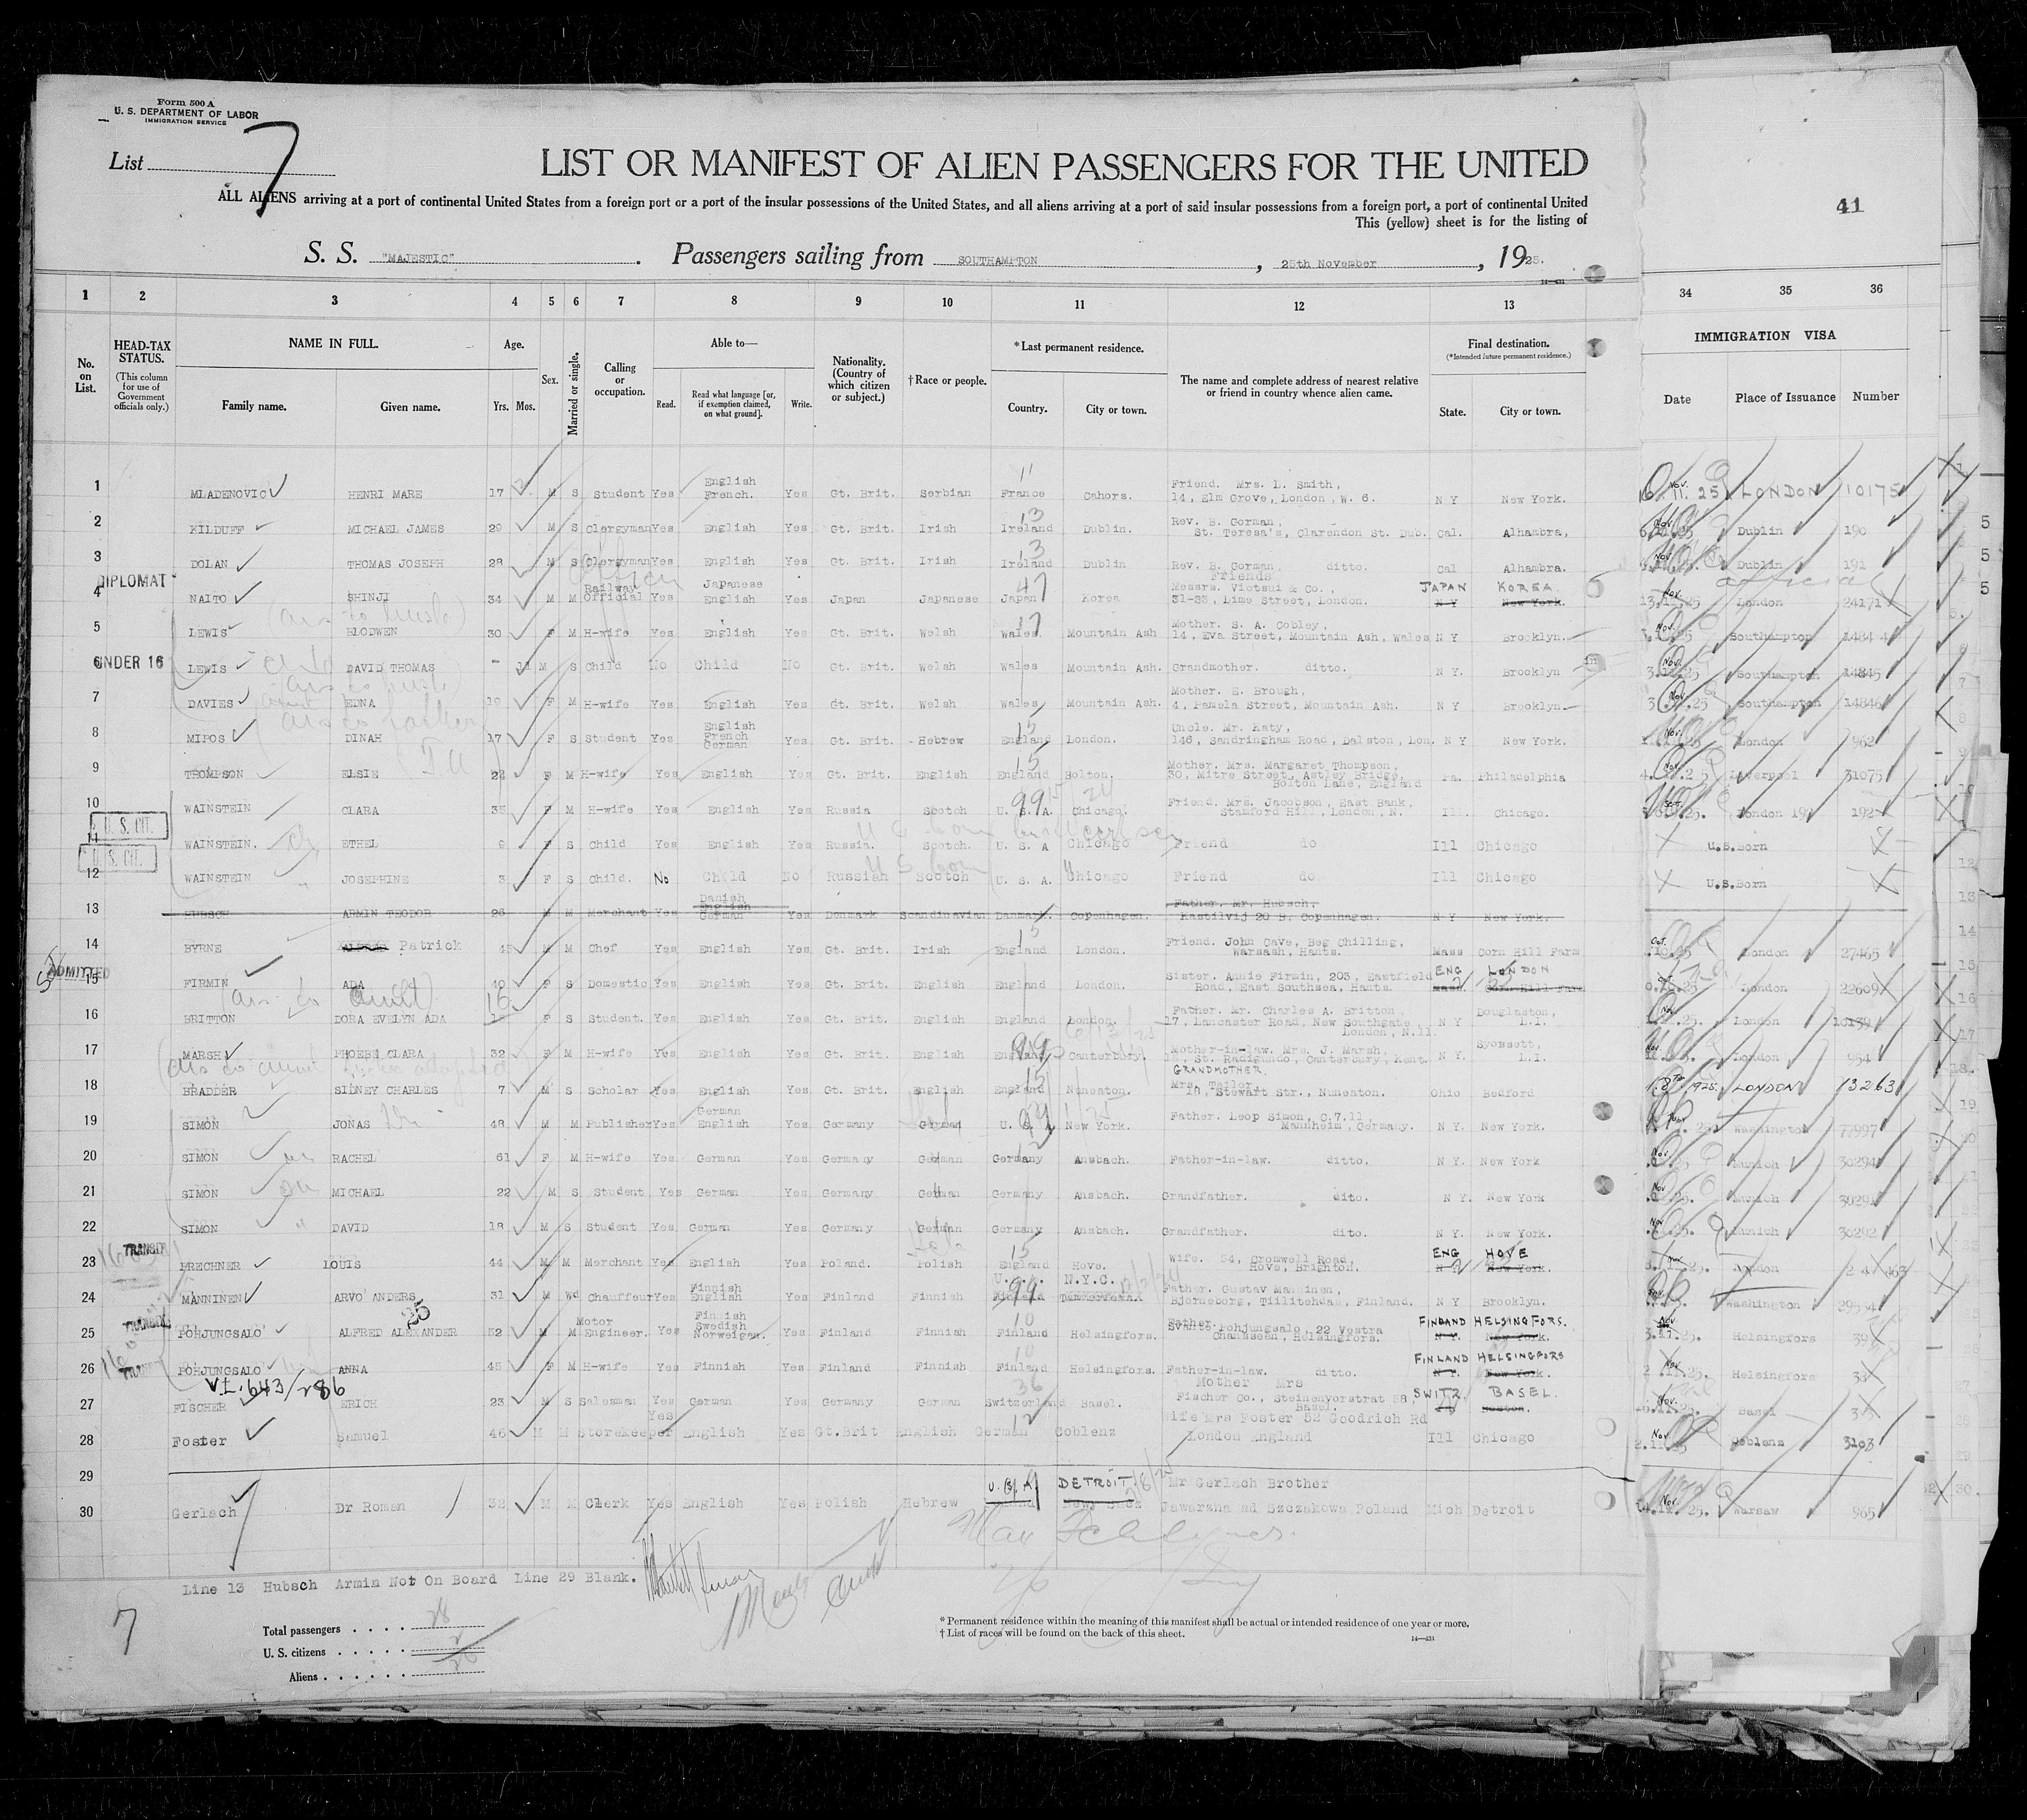 Form 500 A
U. S. DEPARTMENT OF LABOR
IMMIGRATION SERVICE
List 7
LIST OR MANIFEST OF ALIEN PASSENGERS FOR THE UNITED
ALL ALIENS arriving at a port of continental United States from a foreign port or a port of the insular possessions of the United States, and all aliens arriving at a port of said insular possessions from a foreign port, a port of continental United
This (yellow) sheet is for the listing of
41
S. S. "MAJESTIC". Passengers sailing from SOUTHAMPTON, 25th November, 1925.
14-431
1 2 3 4 5 6 7 8 9 10 11 12 13 34 35 36
No. on List.
HEAD-TAX STATUS.
(This column for use of Government officials only.)
NAME IN FULL.
Family name. Given name.
Age.
Yrs. Mos.
Sex.
Married or single.
Calling or occupation.
Able to—
Read. Read what language [or, if exemption claimed, on what ground]. Write.
Nationality. (Country of which citizen or subject.)
† Race or people.
* Last permanent residence.
Country. City or town.
The name and complete address of nearest relative or friend in country whence alien came.
Final destination.
(*Intended future permanent residence.)
State. City or town.
IMMIGRATION VISA
Date Place of Issuance Number
1 MLADENOVIC HENRI MARE 17 M S Student Yes English French. Yes Gt. Brit. Serbian France Cahors. Friend. Mrs. L. Smith, 14, Elm Grove, London, W. 6. N Y New York. LONDON 10175
2 KILDUFF MICHAEL JAMES 29 M S Clergyman Yes English Yes Gt. Brit. Irish Ireland Dublin. Rev. B. Gorman, St. Teresa's, Clarendon St. Dub. Cal. Alhambra, Dublin 190
3 DOLAN THOMAS JOSEPH 28 M S Clergyman Yes English Yes Gt. Brit. Irish Ireland Dublin Rev. B. Gorman, ditto. Cal Alhambra. Dublin 191
DIPLOMAT
4 NAITO SHINJI 34 M M Railway Official Yes Japanese English Yes Japan Japanese Japan Korea Friends Messrs. Vietsui & Co., 31-33, Lime Street, London. JAPAN KOREA N Y New York. official London 24171
5 LEWIS BLODWEN 30 F M H-wife Yes English Yes Gt. Brit. Welsh Wales Mountain Ash Mother. S. A. Cobley, 14, Eva Street, Mountain Ash, Wales N Y Brooklyn. Southampton 14844
UNDER 16
6 LEWIS DAVID THOMAS - 11 M S Child No Child No Gt. Brit. Welsh Wales Mountain Ash. Grandmother. ditto. N Y. Brooklyn Southampton 14845
7 DAVIES EDNA 19 F M H-wife Yes English Yes Gt. Brit. Welsh Wales Mountain Ash. Mother. E. Brough, 4, Pamela Street, Mountain Ash. N Y Brooklyn Southampton 14846
8 MIPOS DINAH 17 F S Student Yes English French German Yes Gt. Brit. Hebrew England London. Uncle. Mr. Katy, 146, Sandringham Road, Dalston, Lon. N Y New York. London 962
9 THOMPSON ELSIE 24 F M H-wife Yes English Yes Gt. Brit. English England Bolton. Mother. Mrs. Margaret Thompson, 30, Mitre Street, Astley Bridge, Bolton Lane, England Pa. Philadelphia Liverpool 31075
10 WAINSTEIN CLARA 35 F M H-wife Yes English Yes Russia Scotch U. S. A. Chicago. Friend. Mrs. Jacobson, East Bank, Stamford Hill, London, N. Ill. Chicago. London 192
U. S. CIT.
11 WAINSTEIN. ETHEL 9 F S Child Yes English Yes Russia. Scotch. U. S. A Chicago Friend do Ill Chicago U.S.Born
U. S. CIT.
12 WAINSTEIN JOSEPHINE 3 F S Child. No Child No Russian Scotch U. S. A. Chicago Friend do Ill Chicago U.S.Born
13 HUBSCH ARMIN TEODOR 26 M M Merchant Yes Danish English German Yes Denmark Scandinavian Danmark. Copenhagen. Father. Mr. Hubsch. Kastilvij 20 B. Copenhagen. N Y New York.
14 BYRNE Patrick 45 M M Chef Yes English Yes Gt. Brit. Irish England London. Friend. John Cave, Beg Chilling, Warsash, Hants. Mass Corn Hill Farm London 27465
ADMITTED
15 FIRMIN ADA 40 F S Domestic Yes English Yes Gt. Brit. English England London. Sister. Annie Firmin, 203, Eastfield Road, East Southsea, Hants. ENG LONDON Mass. Corn Hill Farm London 22609
16 BRITTON DORA EVELYN ADA 16 F S Student. Yes English Yes Gt. Brit. English England London. Father. Mr. Charles A. Britton, 17, Lancaster Road, New Southgate London, N.11. N Y Douglaston, L.I. London 10139
17 MARSH PHOEBE CLARA 32 F M H-wife Yes English Yes Gt. Brit. English England Canterbury. Mother-in-law. Mrs. J. Marsh, St. Radigunds, Canterbury, Kent. N Y. Syossett, L.I. London 954
18 BRADDER SIDNEY CHARLES 7 M S Scholar Yes English Yes Gt. Brit. English England Nuneaton. GRANDMOTHER. Mrs. Tailor, 10, Stewart Str., Nuneaton. Ohio Bedford 1925. LONDON 13263
19 SIMON JONAS 48 M M Publisher Yes German English Yes Germany German U. S. New York. Father. Leop Simon, C.7.11, Mannheim, Germany. N Y. New York. Washington 77997
20 SIMON RACHEL 61 F M H-wife Yes German Yes Germany German Germany Ansbach. Father-in-law. ditto. N Y. New York Munich 30294
21 SIMON MICHAEL 22 M S Student Yes German Yes Germany German Germany Ansbach. Grandfather. dito. N Y. New York Munich 30291
22 SIMON DAVID 18 M S Student Yes German Yes Germany German Germany Ansbach. Grandfather. dito. N Y. New York. Munich 30292
TRANSIT
23 BRECHNER LOUIS 44 M M Merchant Yes English Yes Poland. Polish England Hove. Wife. 54, Cromwell Road, Hove, Brighton. ENG HOVE N Y New York. London
24 MANNINEN ARVO ANDERS 31 M Wd Chauffeur Yes Finnish English Yes Finland Finnish U.S.A. N.Y.C. Father. Gustav Manninen, Bjorneborg, Tiilitehdas, Finland. N Y Brooklyn. Washington 29534
TRANSIT
25 POHJUNGSALO ALFRED ALEXANDER 52 M M Motor Engineer. Yes Finnish Swedish Norweigan. Yes Finland Finnish Finland Helsingfors. Father. Svante Pohjungsalo, 22 Vestra Chaussean, Helsingfors. FINLAND HELSINGFORS. N Y. New York. Helsingfors 39
TRANSIT
26 POHJUNGSALO ANNA 45 F M H-wife Yes Finnish Yes Finland Finnish Finland Helsingfors. Father-in-law. ditto. FINLAND HELSINGFORS N Y. New York. Helsingfors 38
V.I. 643/286
27 FISCHER ERICH 23 M S Salesman Yes German Yes Germany German Switzerland Basel. Mother Mrs Fischer Co., Steinenvorstrat 58, Basel. SWITZ. BASEL. Boston. Basel
28 Foster Samuel 46 M M Storekeeper Yes English Yes Gt.Brit English German Coblenz Wife Mrs Foster 52 Goodrich Rd London England Ill Chicago Coblenz 3103
29
30 Gerlach Dr Roman 32 M M Clerk Yes English Yes Polish Hebrew U.S.A. DETROIT Mr Gerlach Brother Jawarzha ad Szczakowa Poland Mich Detroit Warsaw 965
Line 13 Hubsch Armin Not On Board Line 29 Blank.
7
Total passengers . . . . 28
U. S. citizens . . . . . 2
Aliens . . . . . . 26
* Permanent residence within the meaning of this manifest shall be actual or intended residence of one year or more.
† List of races will be found on the back of this sheet.
14—431